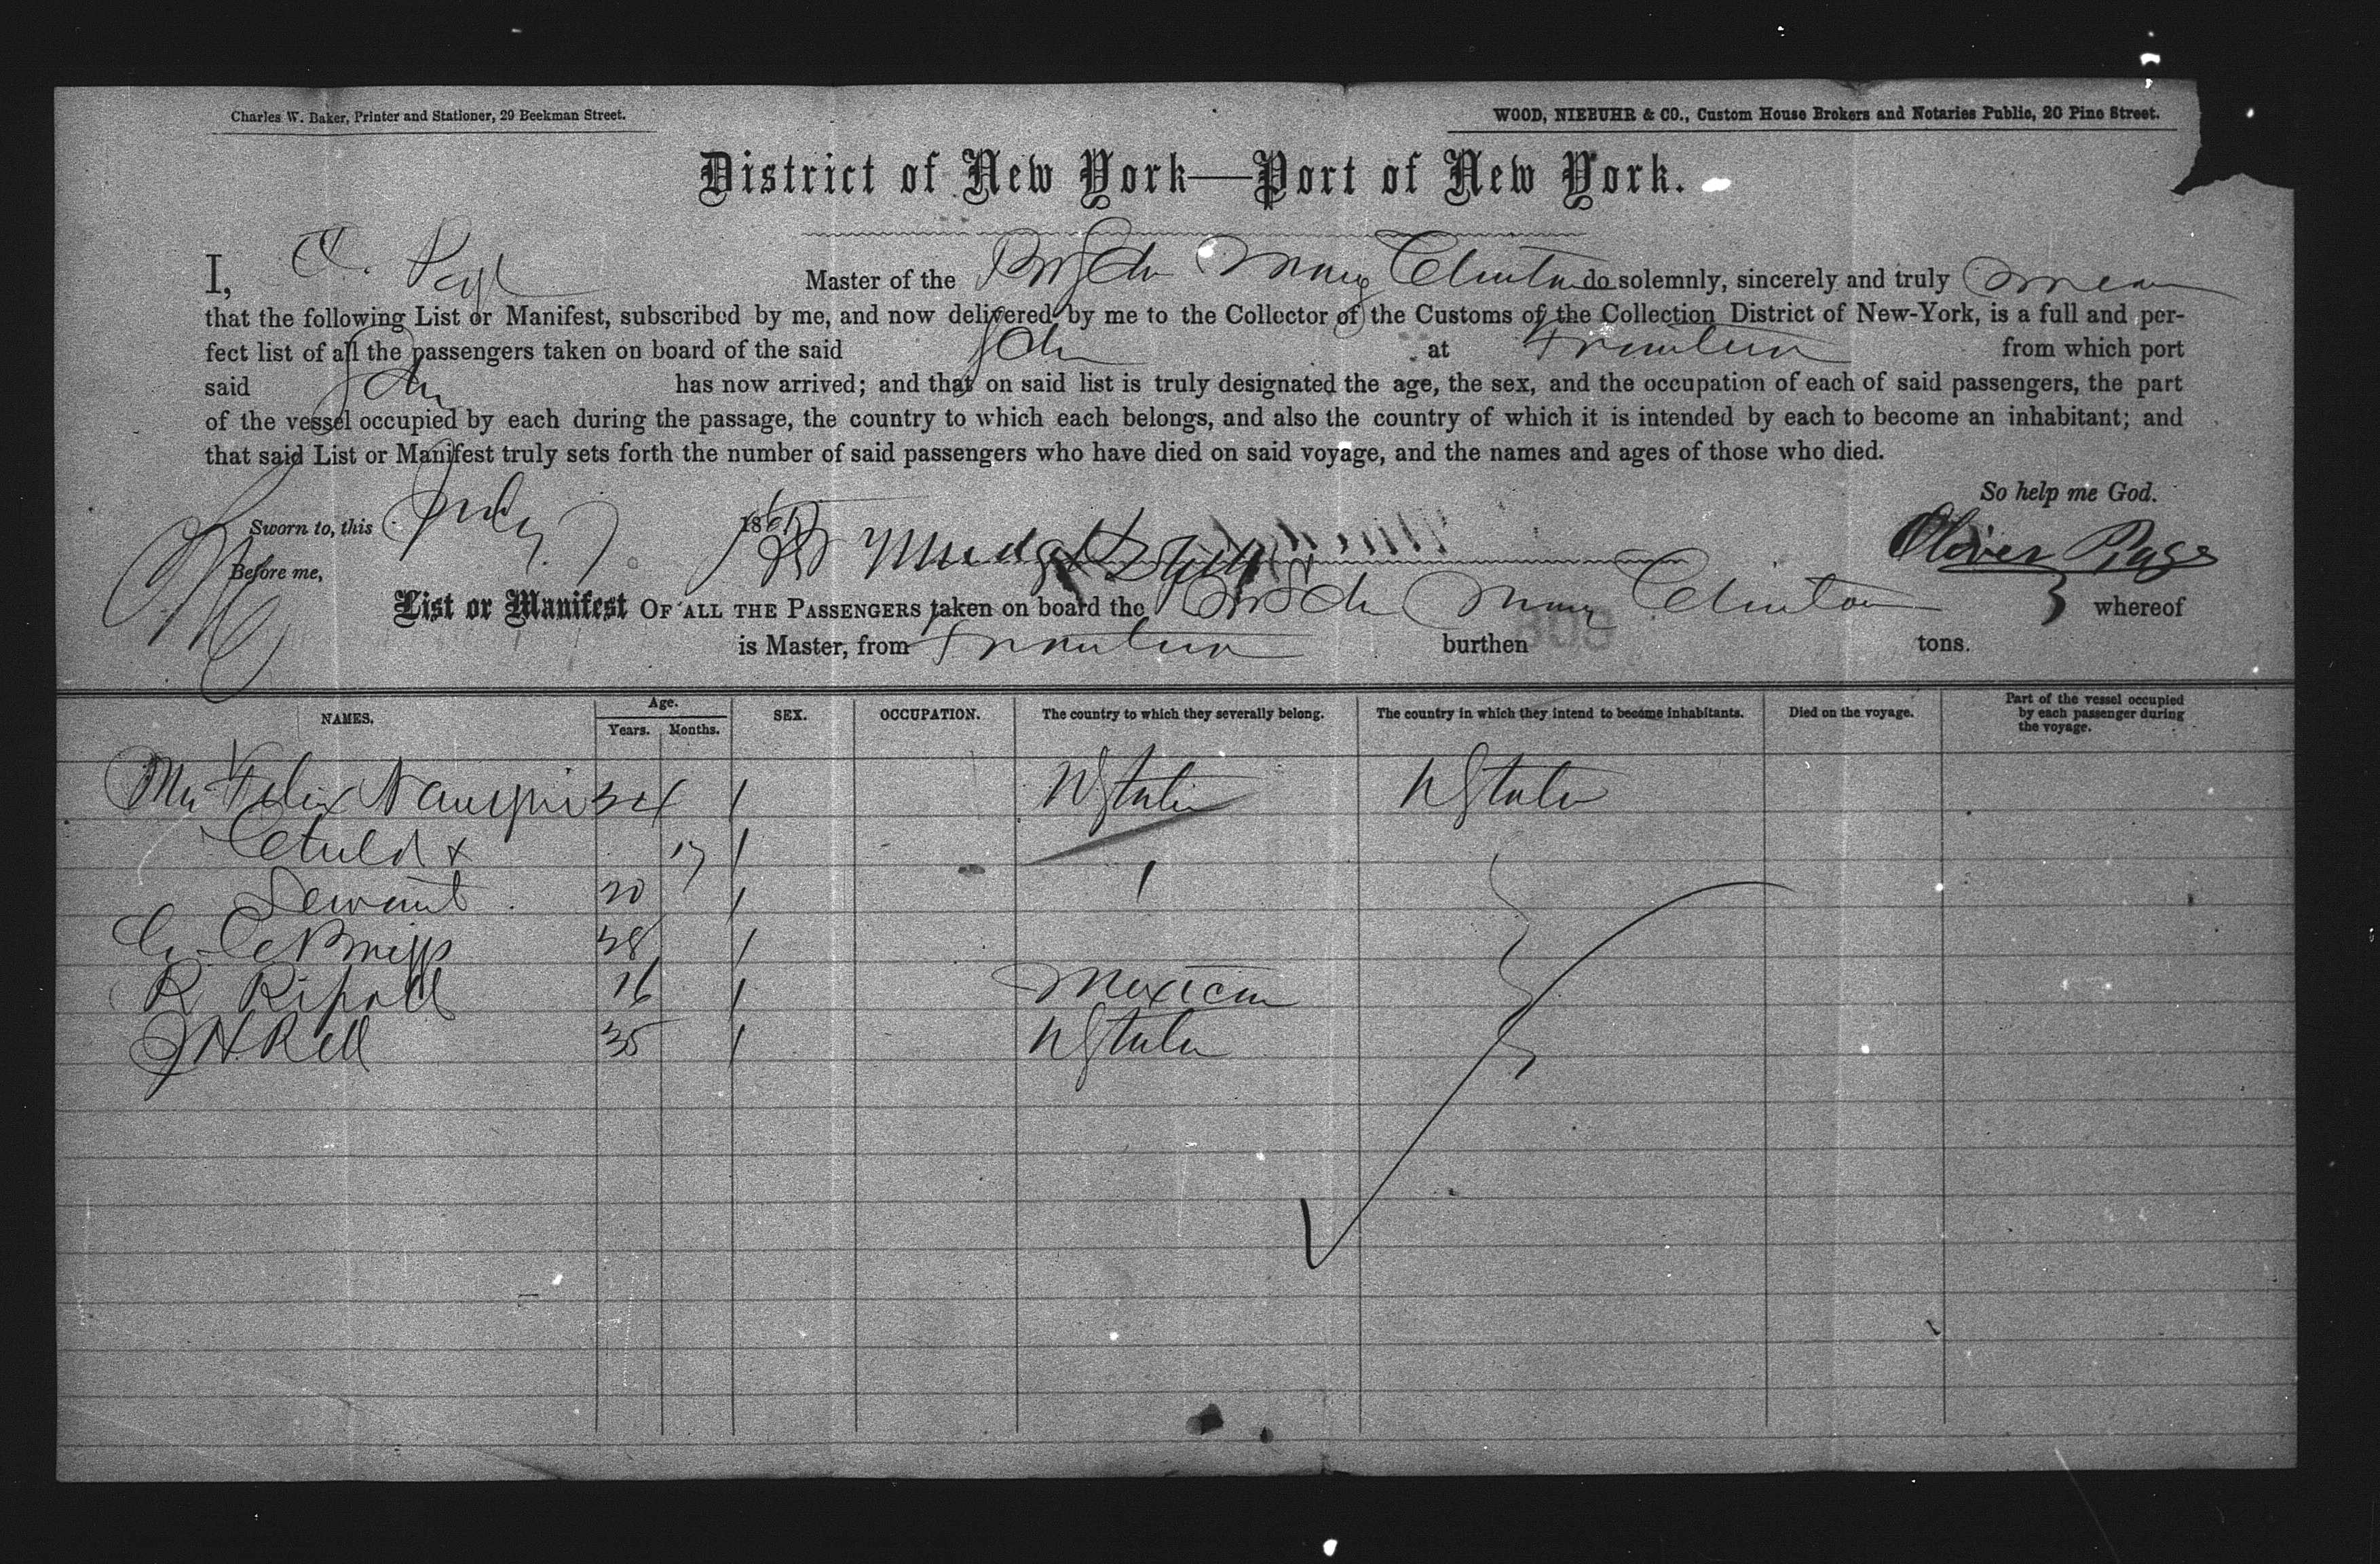 Charles W. Baker, Printer and Stationer, 29 Beekman Street.
WOOD, NIEBUHR & CO., Custom House Brokers and Notaries Public, 20 Pine Street.
District of New York—Port of New York.
I, O. Page Master of the Br Sch Mary Clinton do solemnly, sincerely and truly swear
that the following List or Manifest, subscribed by me, and now delivered by me to the Collector of the Customs of the Collection District of New-York, is a full and per-
fect list of all the passengers taken on board of the said Sch at Frontera from which port
said Sch has now arrived; and that on said list is truly designated the age, the sex, and the occupation of each of said passengers, the part
of the vessel occupied by each during the passage, the country to which each belongs, and also the country of which it is intended by each to become an inhabitant; and
that said List or Manifest truly sets forth the number of said passengers who have died on said voyage, and the names and ages of those who died.
So help me God.
Sworn to, this July 7 186
Oliver Page
Before me,
List or Manifest OF ALL THE PASSENGERS taken on board the Br Sch Mary Clinton whereof
is Master, from Frontera burthen 309 tons.
NAMES. Age. Years. Months. SEX. OCCUPATION. The country to which they severally belong. The country in which they intend to become inhabitants. Died on the voyage. Part of the vessel occupied by each passenger during the voyage.
Mr Felix 34 / U States U States
Child & 17 /
Servant 20 / /
C. C. Briggs 38 /
R Ripoll 16 / Mexican
J H Rell 35 / U States